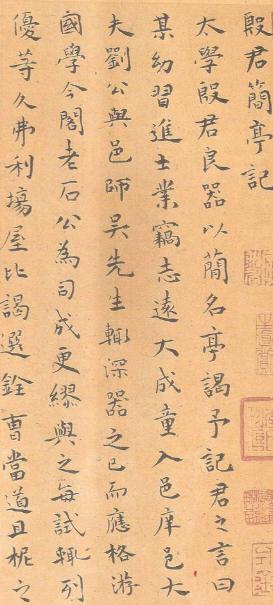 殷君簡亭記
太學殷君良器以蕳名亭謁予記君之言曰
某幼習進士業竊志遠大成童入邑庠邑大
夫劉公與邑師吳先生輙深器之已而應格游
國學今閣老石公為司成更繆與之每試輙列
優等久弗利塲屋比謁選銓曹當道且柅之